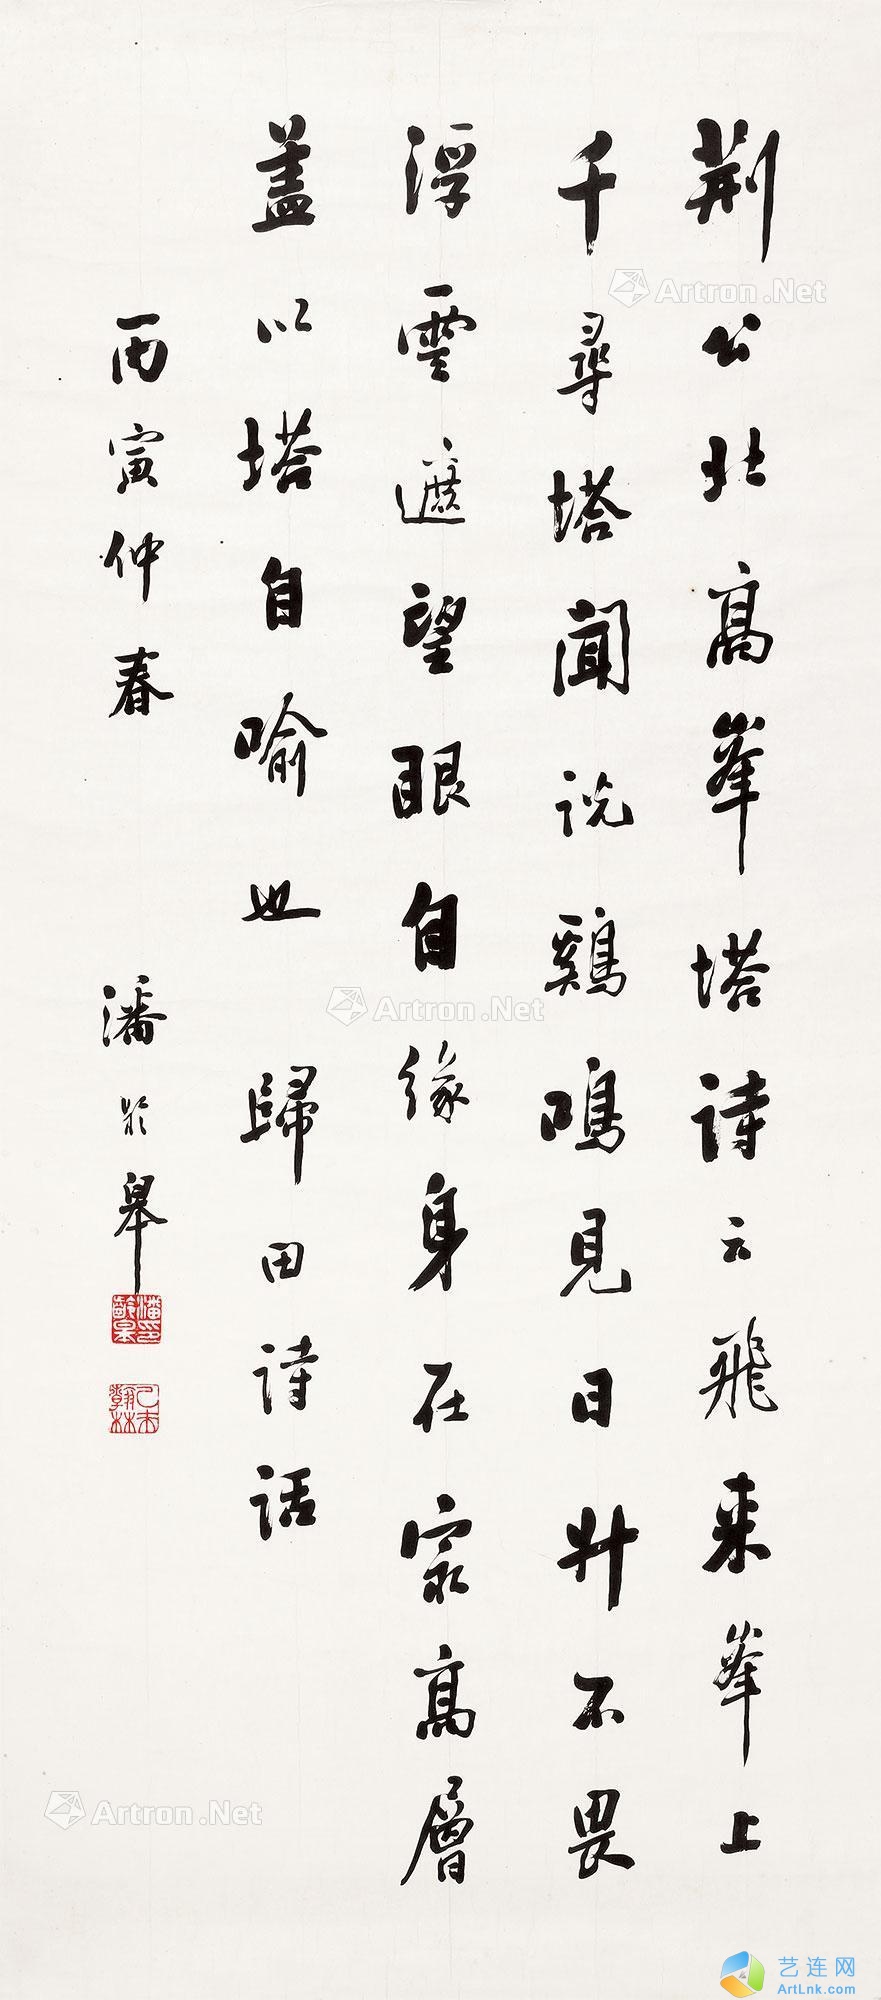 荆公北高峯塔詩云飛来峯上
千尋塔聞説鷄鳴見日升不畏
浮雲遮望眼自緣身在寂高層
盖以塔自喻也 歸田詩話
丙寅仲春
潘於皋
潘印齡皋
乙未翰林
Artron.Net
Artron.Net
Artron.Net
艺连网
ArtLnk.com